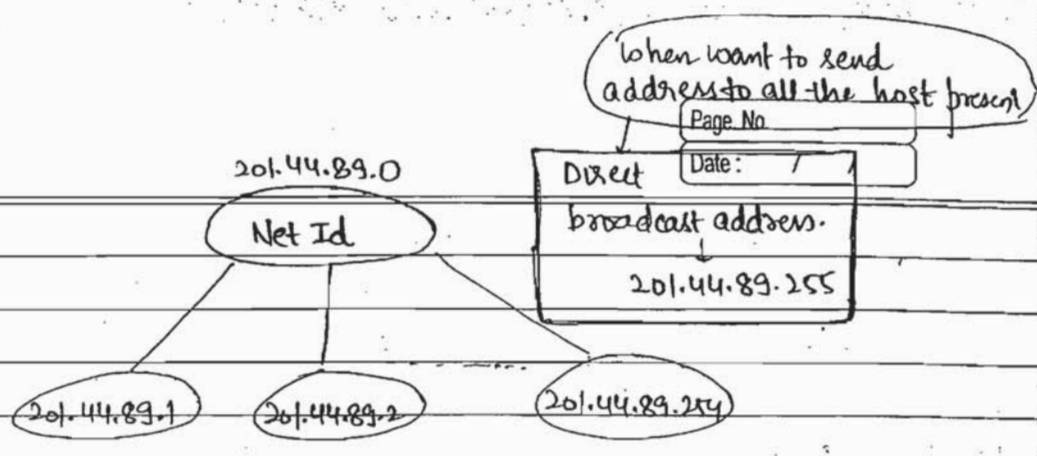 When want to send
address to all the host present
Page No
Date: /
201.44.89.0
Direct
Net Id
broadcast address.
201.44.89.255
201.44.89.1
201.44.89.2
201.44.89.254